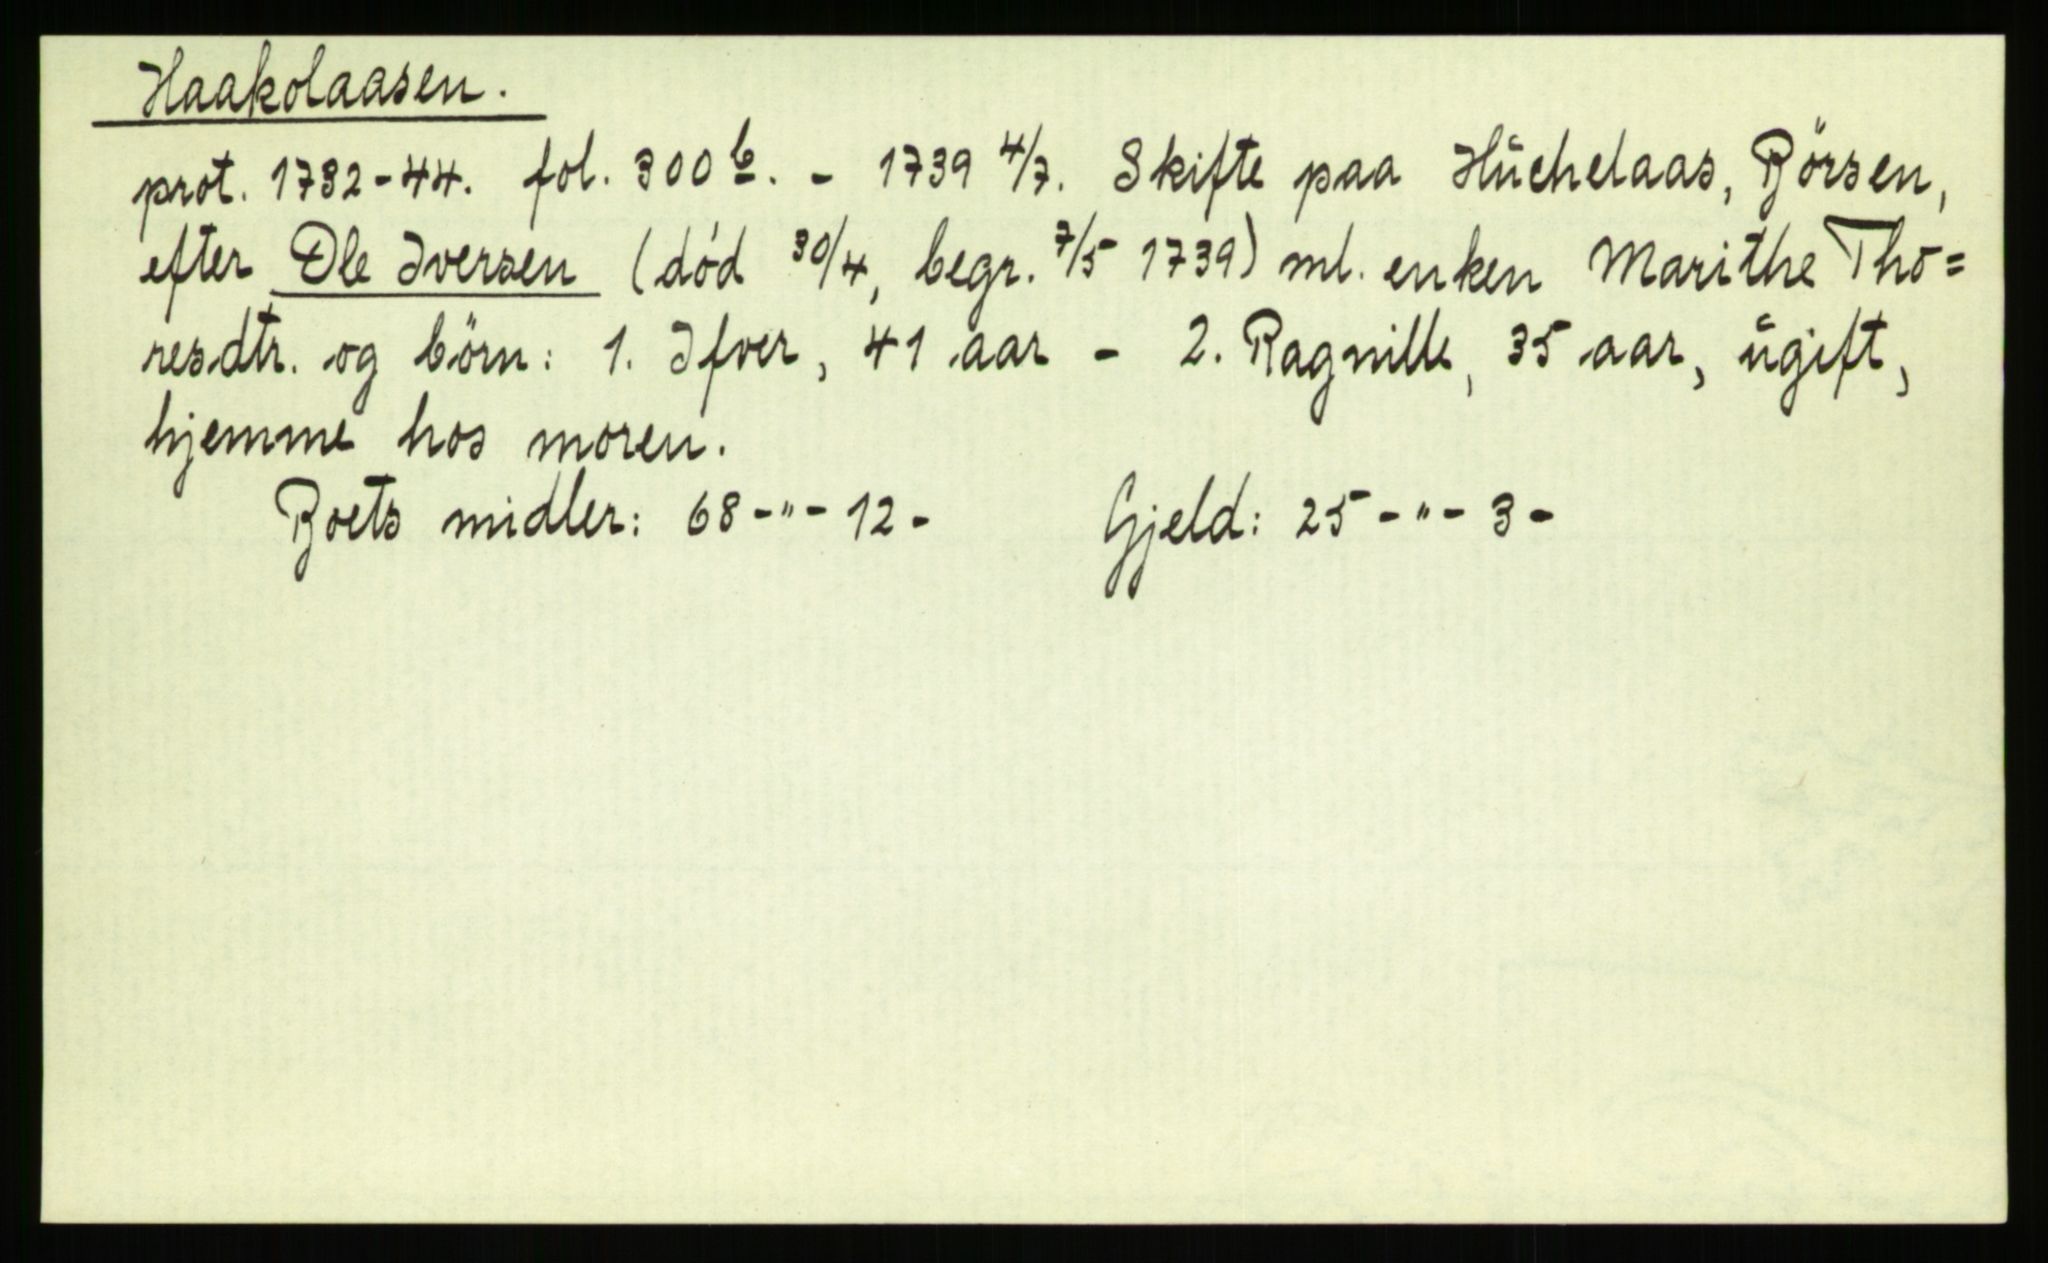 Haakolaasen.
prot. 1732-44. fol. 300 b. - 1739 4/7. Skifte paa Hüchelaas, Börsen,
efter Ole Iversen (död 30/4, begr. 7/5 1739) ml. enken Marithe Tho=
resdtr. og börn: 1. Ifver, 41 aar - 2. Ragnille, 35 aar, ügift,
hjemme hos moren.
Boets midler: 68-"-12- Gjeld: 25-"-3-